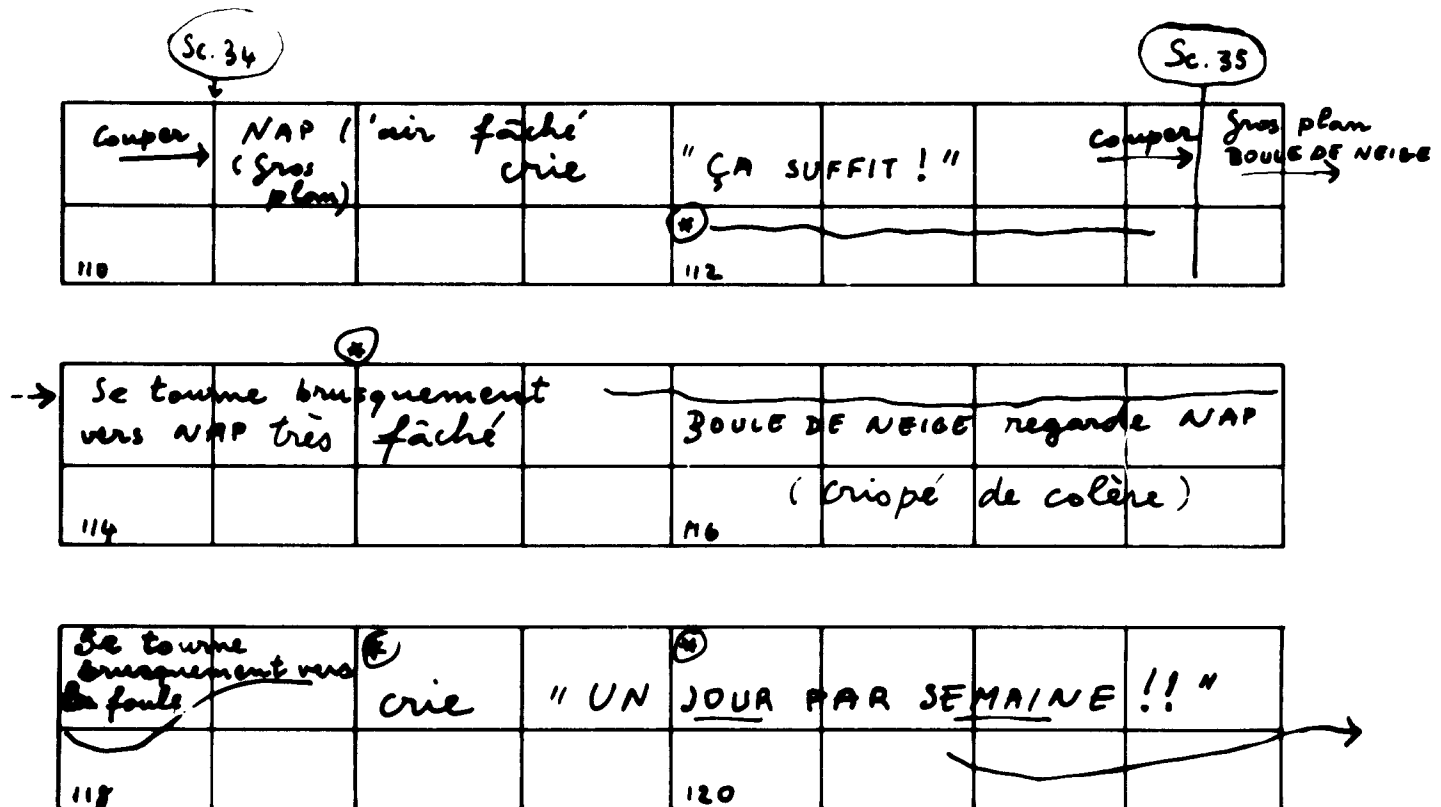 Sc. 34
Sc. 35
couper NAP l'air fâché
(gros plan) crie
"ÇA SUFFIT !"
couper
Gros plan
BOULE DE NEIGE
110
112
Se tourne brusquement
vers NAP très fâché
BOULE DE NEIGE regarde NAP
(crispé de colère)
114
116
Se tourne
brusquement vers
la foule
crie "UN JOUR PAR SEMAINE !!"
118
120